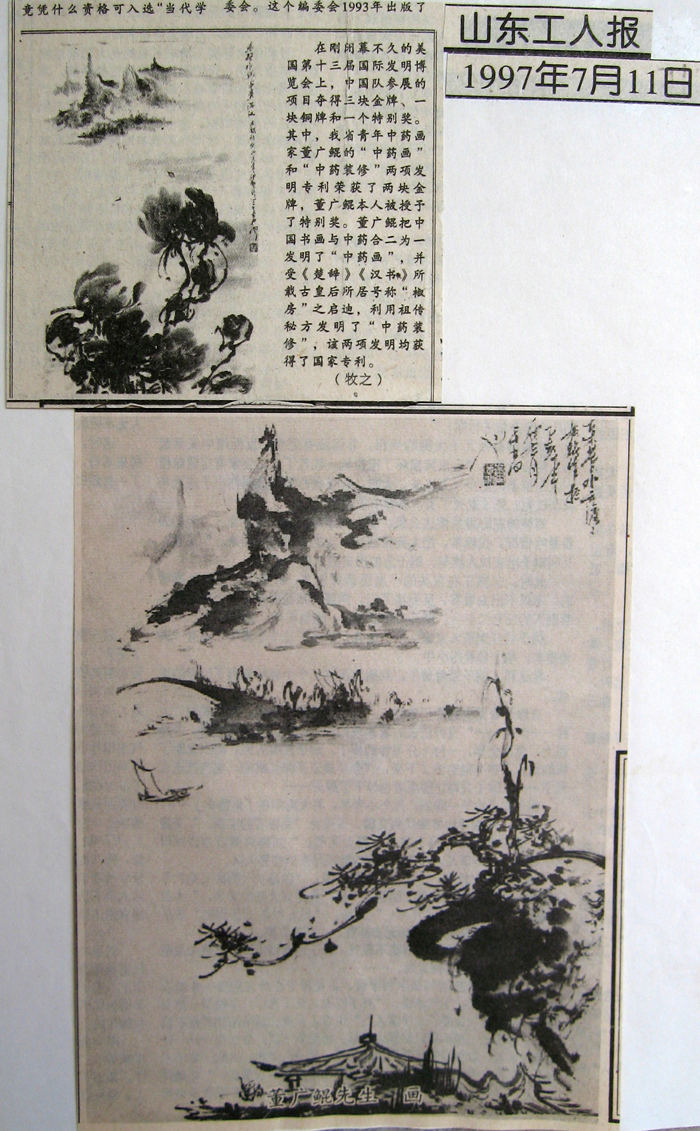 竟凭什么资格可入选“当代学 委会。这个编委会1993年出版了
山东工人报
1997年7月11日
在刚闭幕不久的美
国第十三届国际发明博
览会上，中国队参展的
项目夺得三块金牌、一
块铜牌和一个特别奖。
其中，我省青年中药画
家董广鲲的“中药画”
和“中药装修”两项发
明专利荣获了两块金
牌，董广鲲本人被授予
了特别奖。董广鲲把中
国书画与中药合二为一
发明了“中药画”，并
受《楚辞》《汉书》所
载古皇后所居号称“椒
房”之启迪，利用祖传
秘方发明了“中药装
修”，该两项发明均获
得了国家专利。
（牧之）
董广鲲先生 画